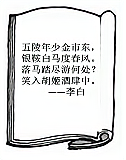 五陵年少金市东，
银鞍白马度春风。
落马踏尽游何处？
笑入胡姬酒肆中。
——李白